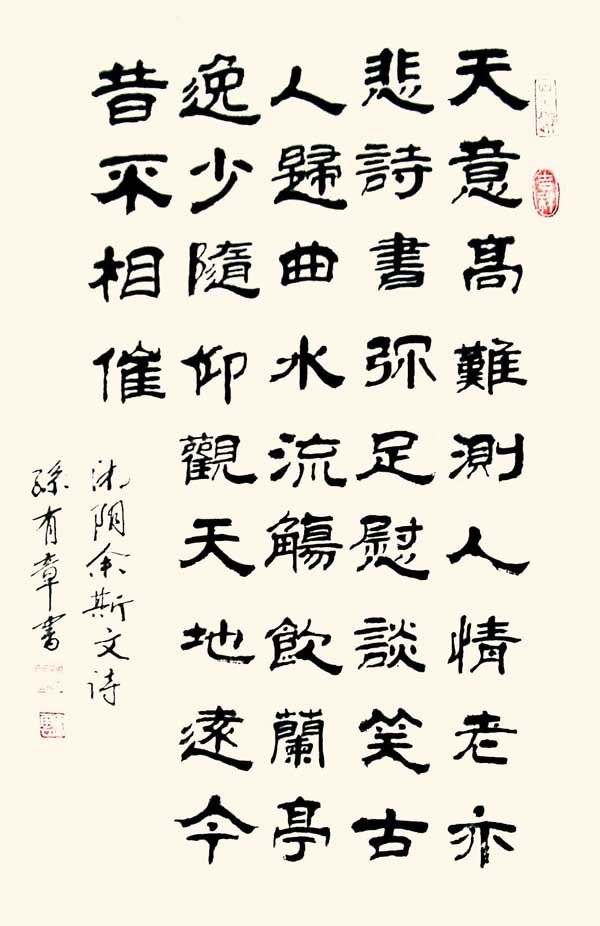 天意髙難測人情老亦
悲詩書弥足慰談笑古
人歸曲水流觴飲蘭亭
逸少隨仰觀天地遠今
昔相催
余斯文诗
孫有章書